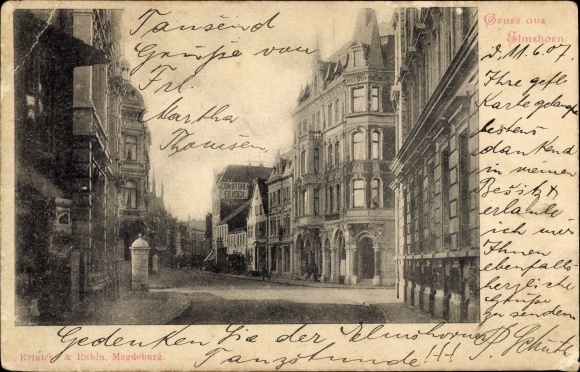 Gruss aus
Elmshorn
Tausend
Grüße von
Frl.
Martha
Thomsen
D. 11.6.07.
Ihre gefl.
Karte gelangte
bestens
dankend
in meinen
Besitz &
erlaube
ich mir
Ihnen
ebenfalls
herzliche
Grüße
zu senden
P. Schütt
CONDITOREI
Gedenken Sie der Elmshorner
Tanzstunde!!!
Reinicke & Rubin, Magdeburg.